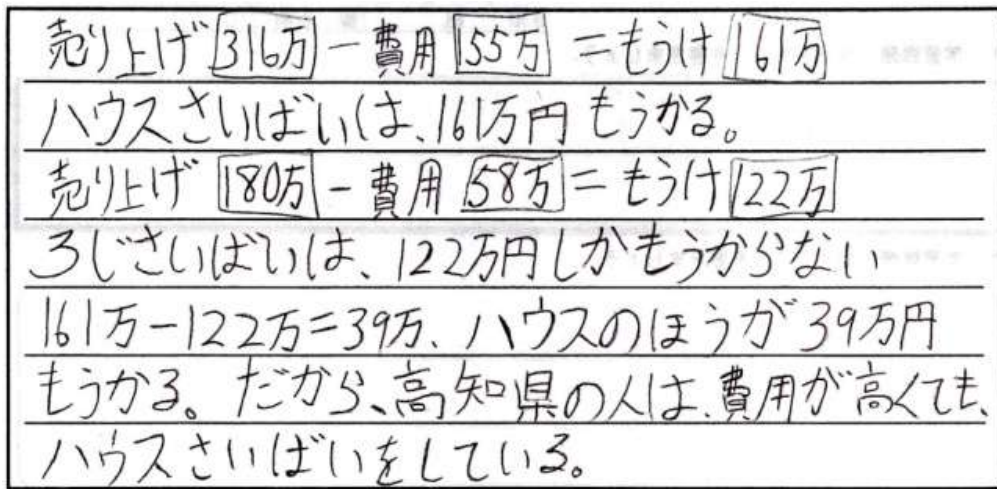 売り上げ 316万 - 費用 155万 = もうけ 161万
ハウスさいばいは、161万円もうかる。
売り上げ 180万 - 費用 58万 = もうけ 122万
ろじさいばいは、122万円しかもうからない
161万-122万=39万、ハウスのほうが39万円
もうかる。だから、高知県の人は、費用が高くても、
ハウスさいばいをしている。